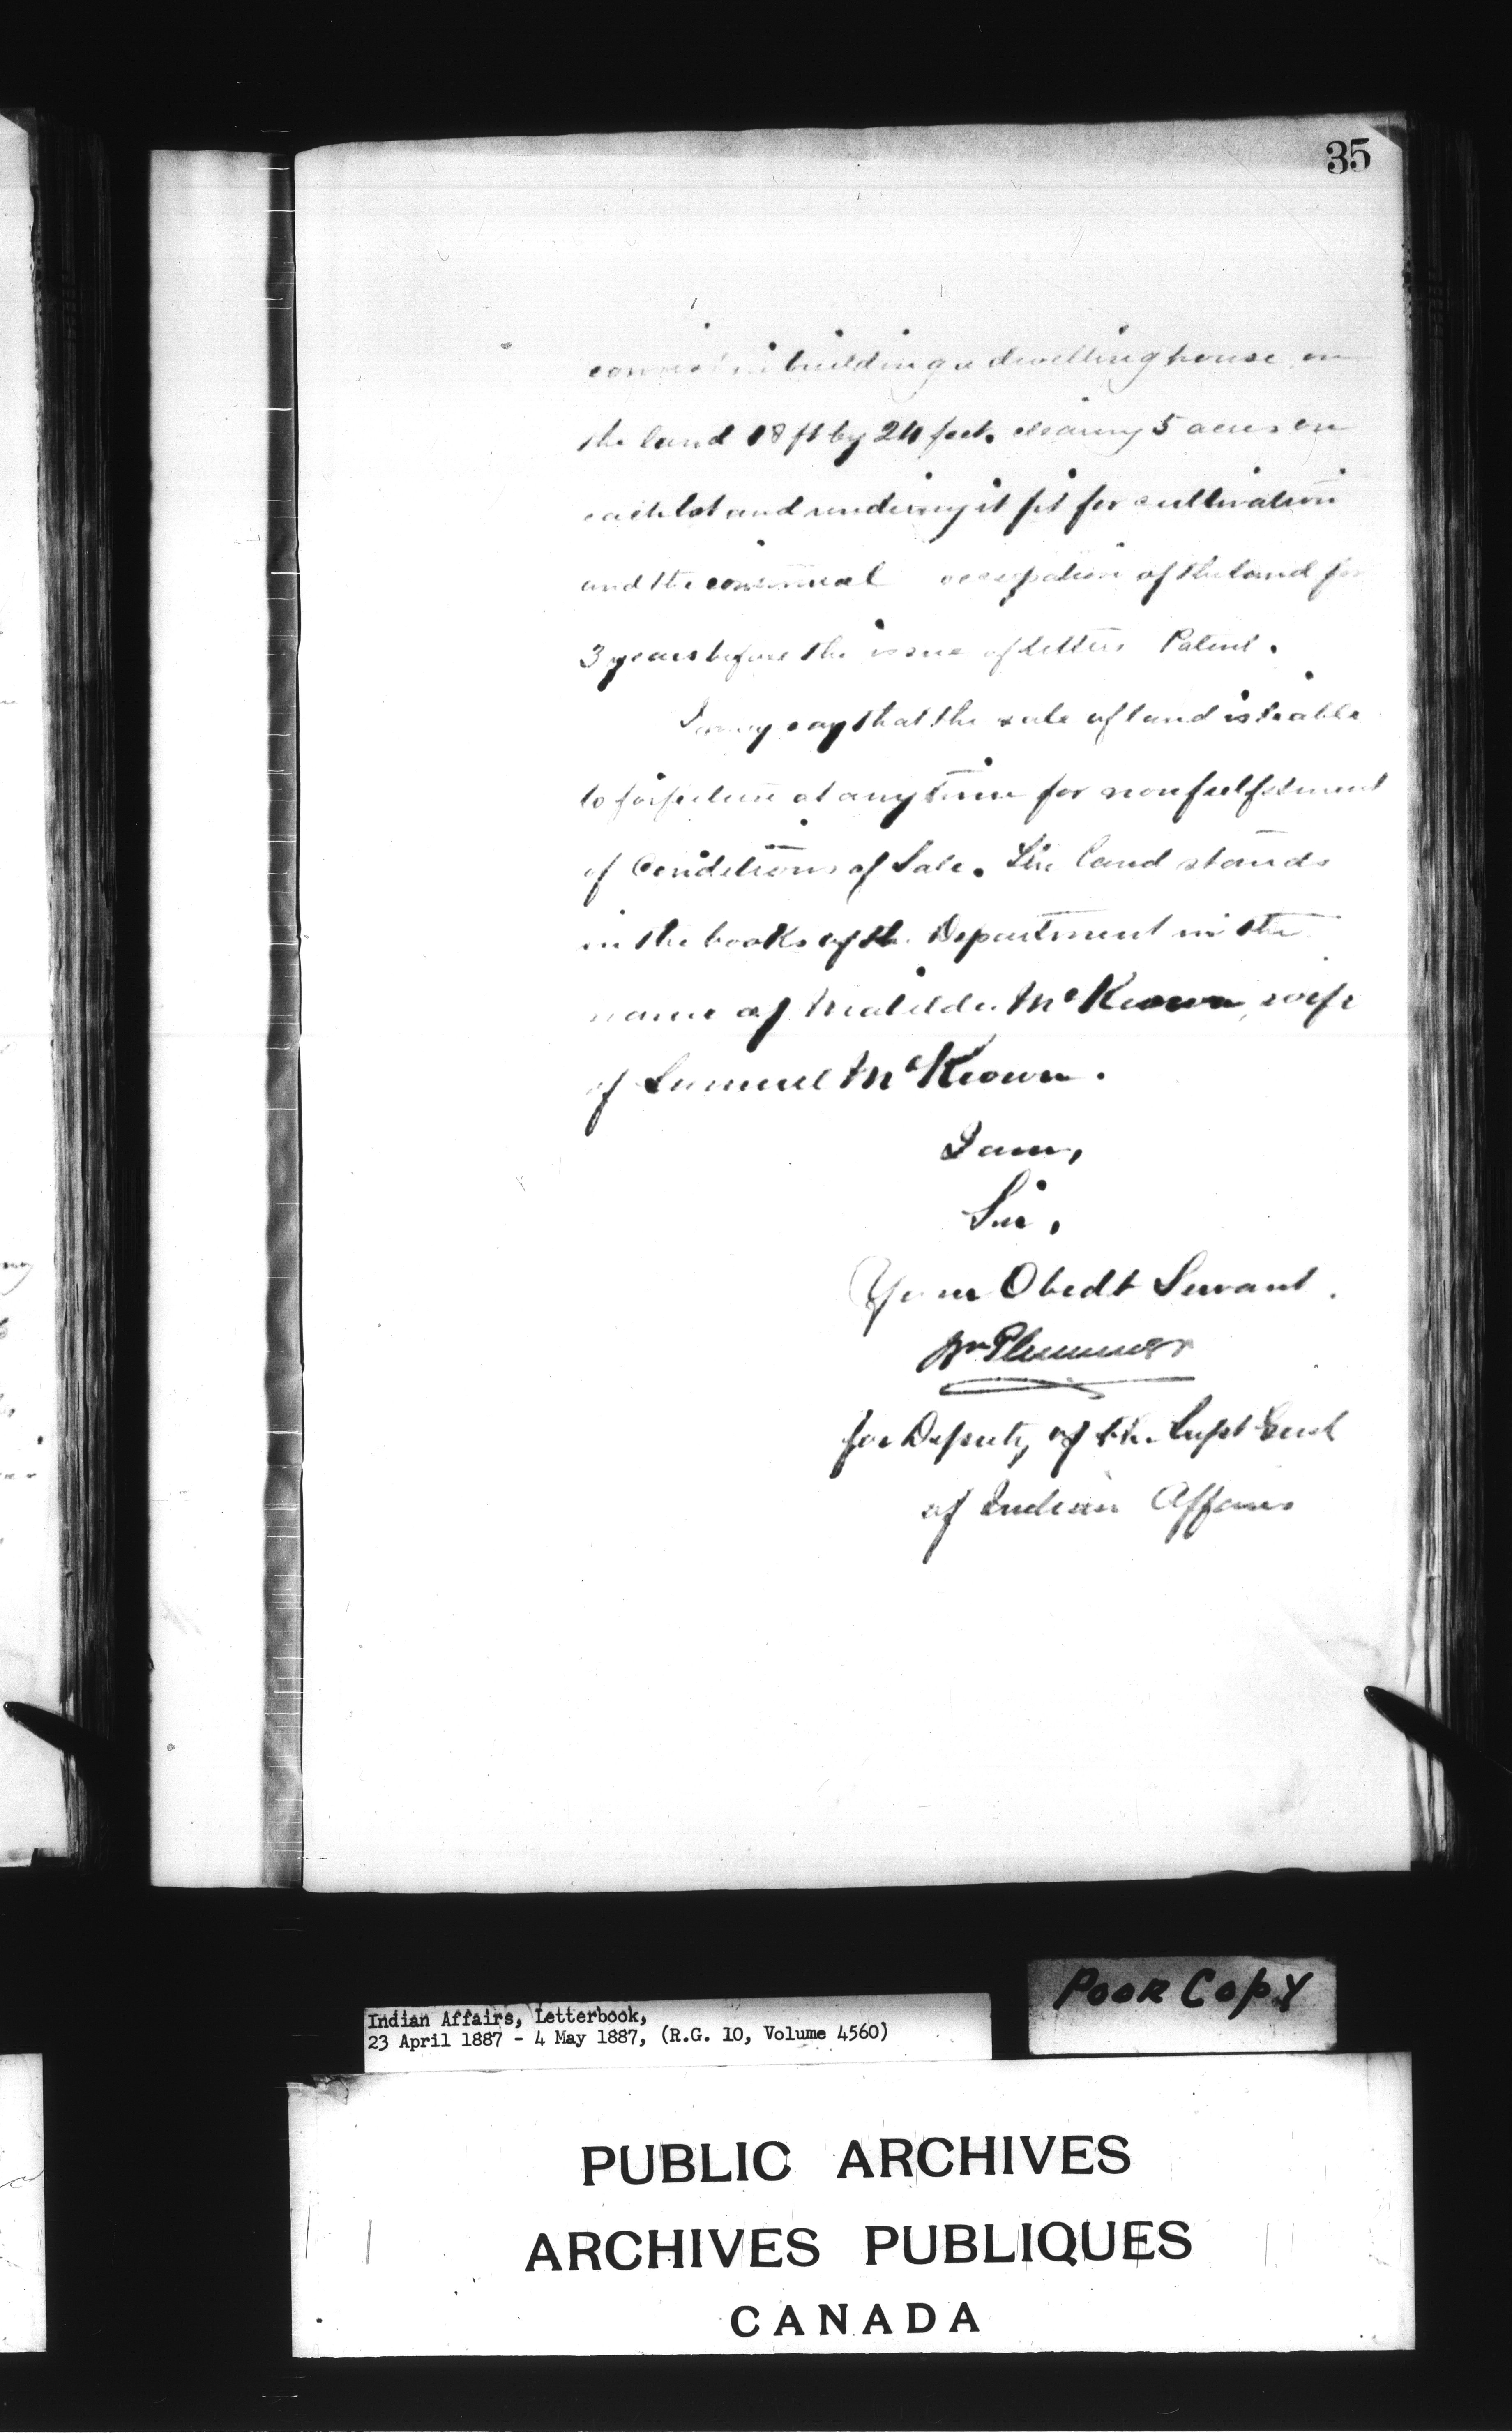 35
consist in building a dwelling house on
the land 18 ft by 24 feet, clearing 5 acres on
each lot and rendering it fit for cultivation
and the continual occupation of the land for
3 years before the issue of Letters Patent.
I may say that the sale of land is liable
to forfeiture at any time for nonfulfilment
of Conditions of Sale. The land stands
in the books of the Department in the
name of Matilda McKeown, wife
of Samuel McKeown.
I am,
Sir,
Your Obedt Servant.
Wm Plummer
for Deputy of the Supt Genl
of Indian Affairs
POOR COPY
Indian Affairs, Letterbook,
23 April 1887 - 4 May 1887, (R.G. 10, Volume 4560)
PUBLIC ARCHIVES
ARCHIVES PUBLIQUES
CANADA